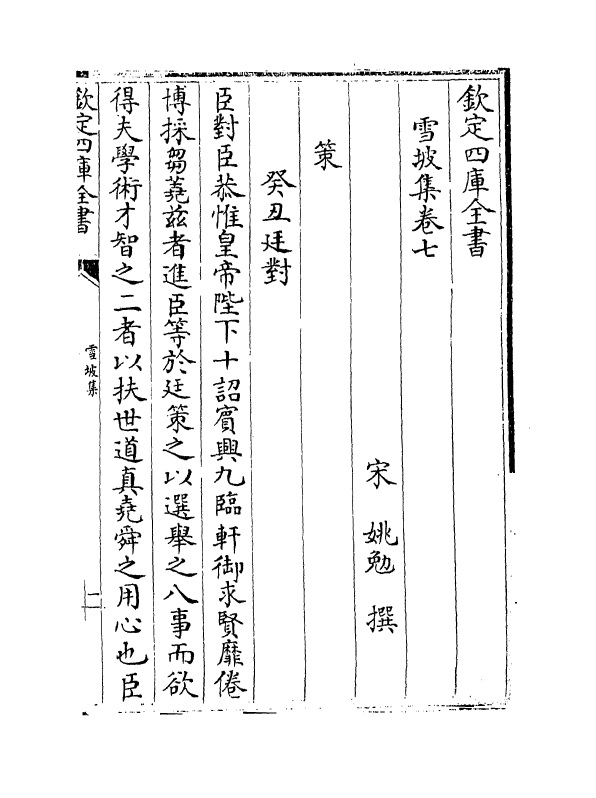 欽定四庫全書
雪坡集卷七
宋 姚勉 撰
策
癸丑廷對
臣對臣恭惟皇帝陛下十詔賓興九臨軒御求賢靡倦
博採芻蕘兹者進臣等於廷策之以選舉之八事而欲
得夫學術才智之二者以扶世道真堯舜之用心也臣
欽定四庫全書
雪坡集
一